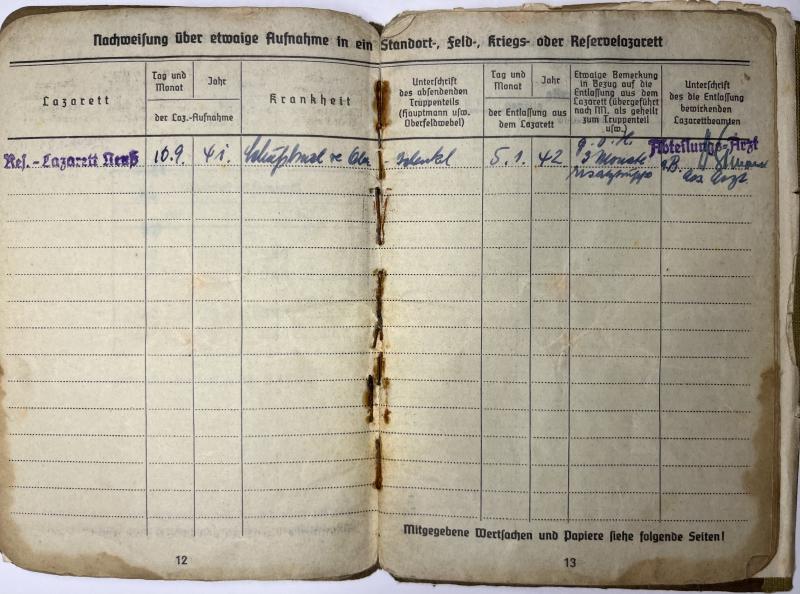 Nachweisung über etwaige Aufnahme in ein Standort-, Feld-, Kriegs- oder Reservelazarett
Lazarett
Tag und
Monat
Jahr
der Laz.-Aufnahme
Krankheit
Unterschrift
des absendenden
Truppenteils
(Hauptmann usw.
Oberfeldwebel)
Tag und
Monat
Jahr
der Entlassung aus
dem Lazarett
Etwaige Bemerkung
in Bezug auf die
Entlassung aus dem
Lazarett (übergeführt
nach M. als geheilt
zum Truppenteil
usw.)
Unterschrift
des die Entlassung
bewirkenden
Lazarettbeamten
Res.-Lazarett Neuß
10.9.
41.
re
5.1.
42
g.v.H.
3 Monate
Abteilungs-Arzt
Ass Arzt
Mitgegebene Wertsachen und Papiere siehe folgende Seiten!
12
13